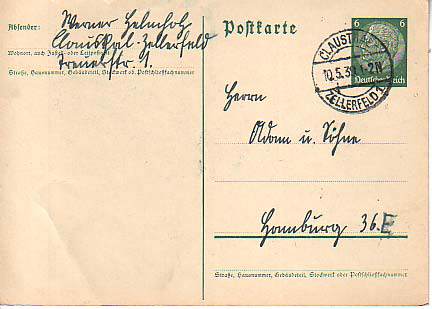 Absender: Werner Helmholz
Clausthal-Zellerfeld
Wohnort, auch Zustell- oder Leitpostamt
Straße, Hausnummer, Gebäudeteil, Stockwerk od. Postschließfachnummer
Postkarte
6 6
Deutsches Reich
CLAUSTHAL-
10.5.39.1-2N
ZELLERFELD 1
Herrn
Adam u. Söhne
Hamburg 36. E
Straße, Hausnummer, Gebäudeteil, Stockwerk oder Postschließfachnummer